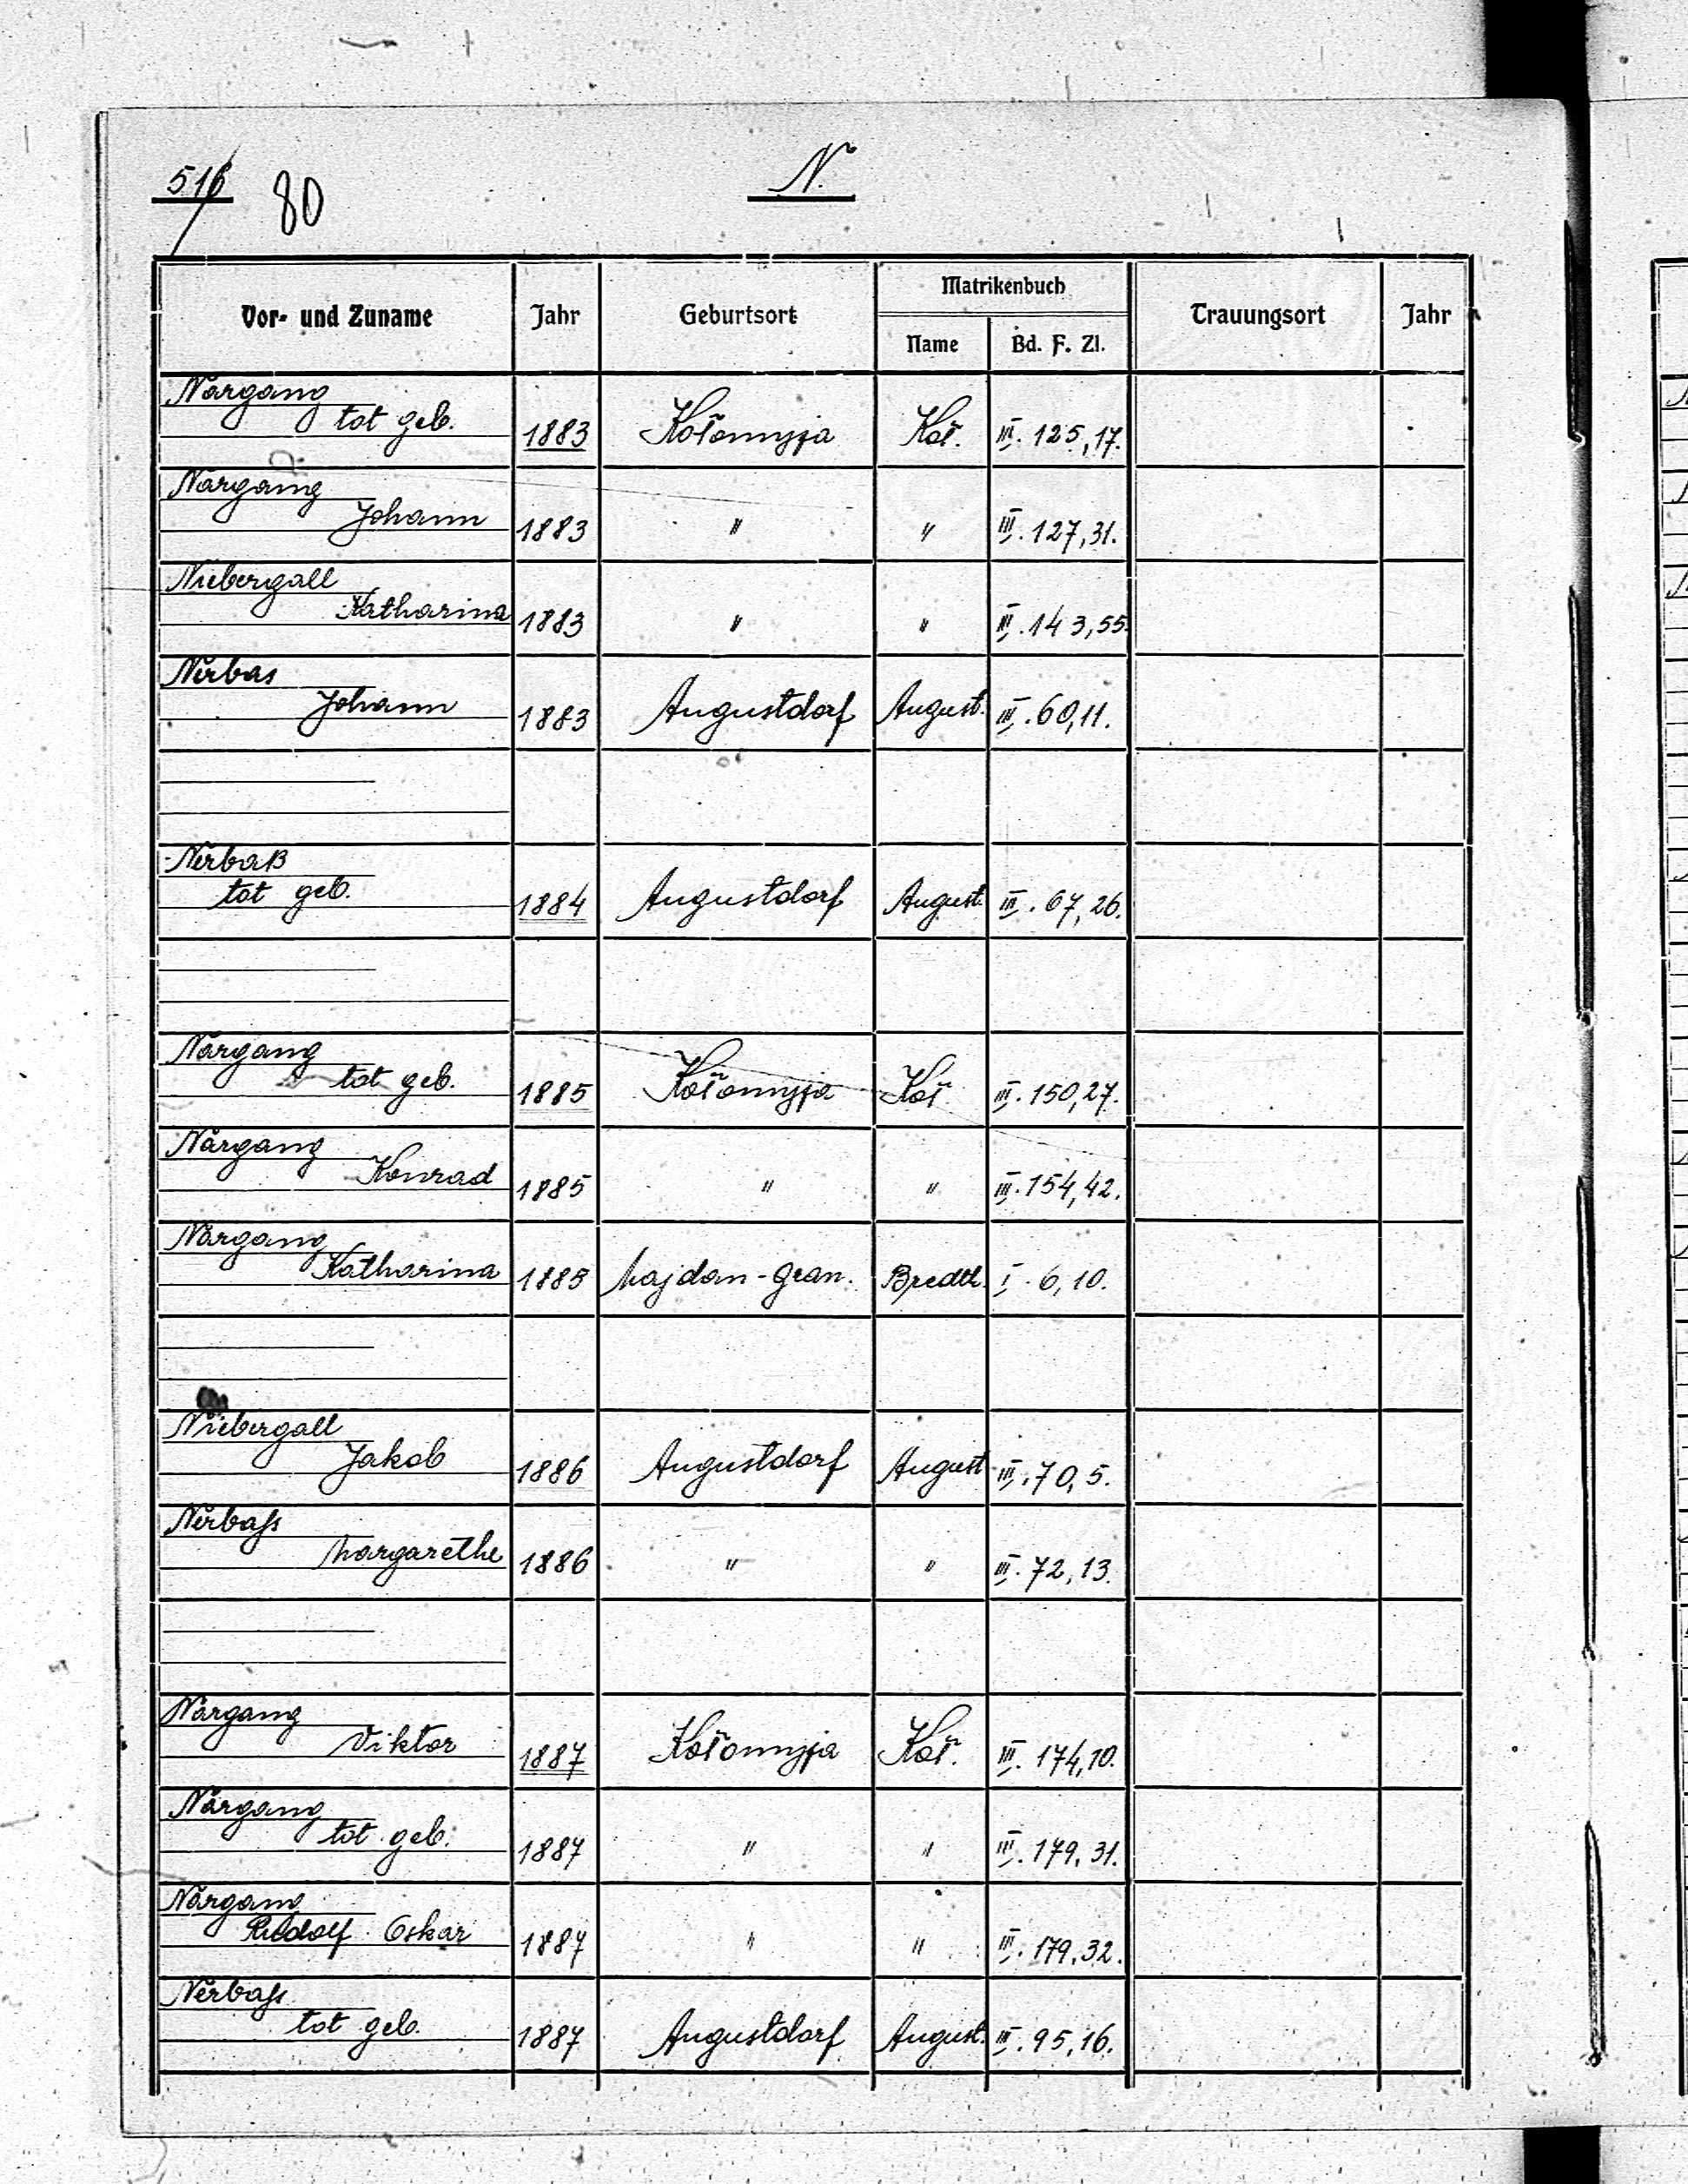 516 80 N.
Vor- und Zuname Jahr Geburtsort Matrikenbuch Trauungsort Jahr
Name Bd. F. Zl.
Nargang
tot geb. 1883 Kołomyja Koł. III. 125,17.
Nargang
Johann 1883 " " III. 127,31.
Niebergall
Katharina 1883 " " III. 143,55.
Nerbas
Johann 1883 Augustdorf August. III. 60,11.
Nerbaß
tot geb. 1884 Augustdorf August. III. 67,26.
Nargang
tot geb. 1885 Kołomyja Koł III. 150,27.
Nargang
Konrad 1885 " " III. 154,42.
Nargang
Katharina 1885 Majdan-Gran. Bredth. I. 6,10.
Niebergall
Jakob 1886 Augustdorf August III. 70,5.
Nerbaß
Margarethe 1886 " " III. 72,13.
Nargang
Viktor 1887 Kołomyja Koł. III. 174,10.
Nargang
tot geb. 1887 " " III. 179,31.
Nargang
Rudolf Oskar 1887 " " III. 179,32.
Nerbaß
tot geb. 1887 Augustdorf August. III. 95,16.